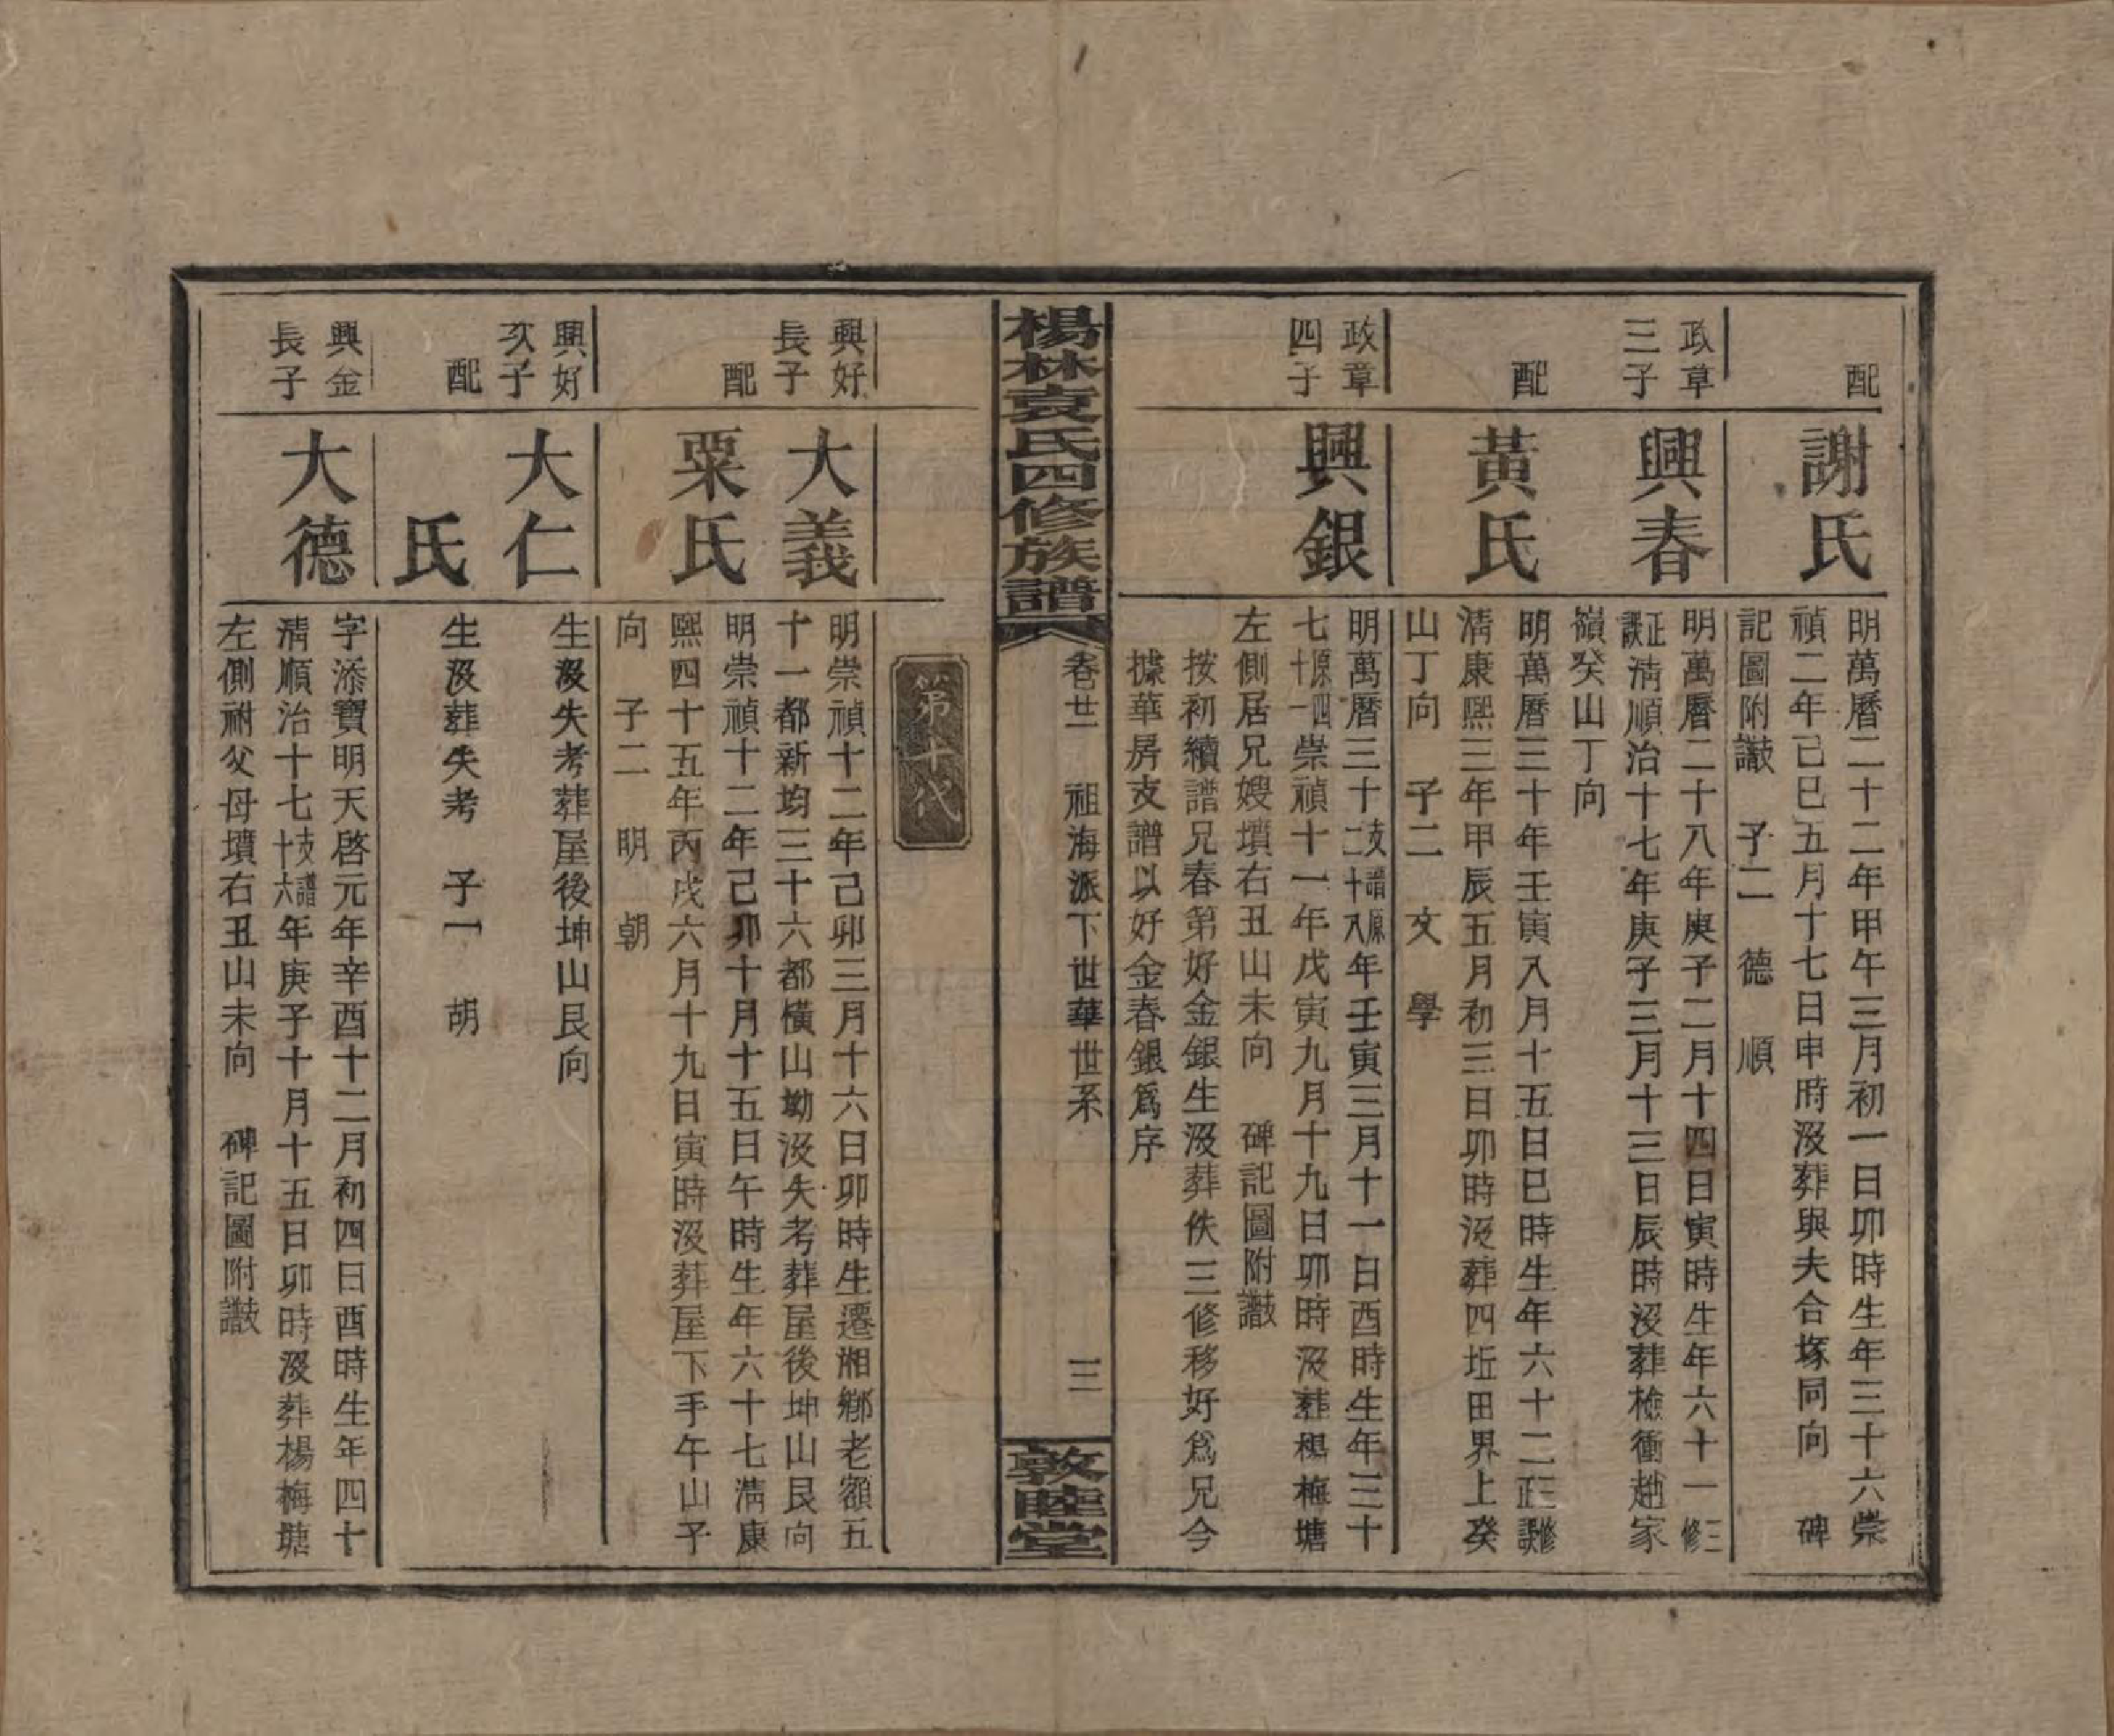 配
謝氏
明萬曆二十二年甲午三月初一日卯時生年三十六崇
禎二年己巳五月十七日申時沒葬與夫合塚同向　碑
記圖附譏　子二　德　順
政章
三子
興春
明萬曆二十八年庚子二月十四日寅時生年六十一三修
正誤清順治十七年庚子三月十三日辰時沒葬檢衝趙家
嶺癸山丁向
配
黃氏
明萬曆三十年壬寅八月十五日巳時生年六十二三修正誤
清康熙三年甲辰五月初三日卯時沒葬四坵田界上癸
山丁向　子二　文　學
政章
四子
興銀
明萬曆三十支譜二十原八年壬寅三月十一日酉時生年三十
七原四十一崇禎十一年戊寅九月十九日卯時沒葬楊梅塘
左側居兄嫂墳右丑山未向　碑記圖附譏
按初續譜兄春第好金銀生沒葬佚三修移好為兄今
據華房支譜以好金春銀為序
楊林袁氏四修族譜
卷廿一　祖海派下世華世系
三
敦睦堂
第十代
興好
長子
大義
明崇禎十二年己卯三月十六日卯時生遷湘鄉老額五
十一都新均三十六都橫山坳沒失考葬屋後坤山艮向
配
粟氏
明崇禎十二年己卯十月十五日午時生年六十七清康
熙四十五年丙戌六月十九日寅時沒葬屋下手午山子
向　子二　明　朝
興好
次子
大仁
生沒失考葬屋後坤山艮向
配
氏
生沒葬失考　子一　胡
興金
長子
大德
字添寶明天啓元年辛酉十二月初四日酉時生年四十
清順治十七支譜十六年庚子十月十五日卯時沒葬楊梅塘
左側祔父母墳右丑山未向　碑記圖附譏